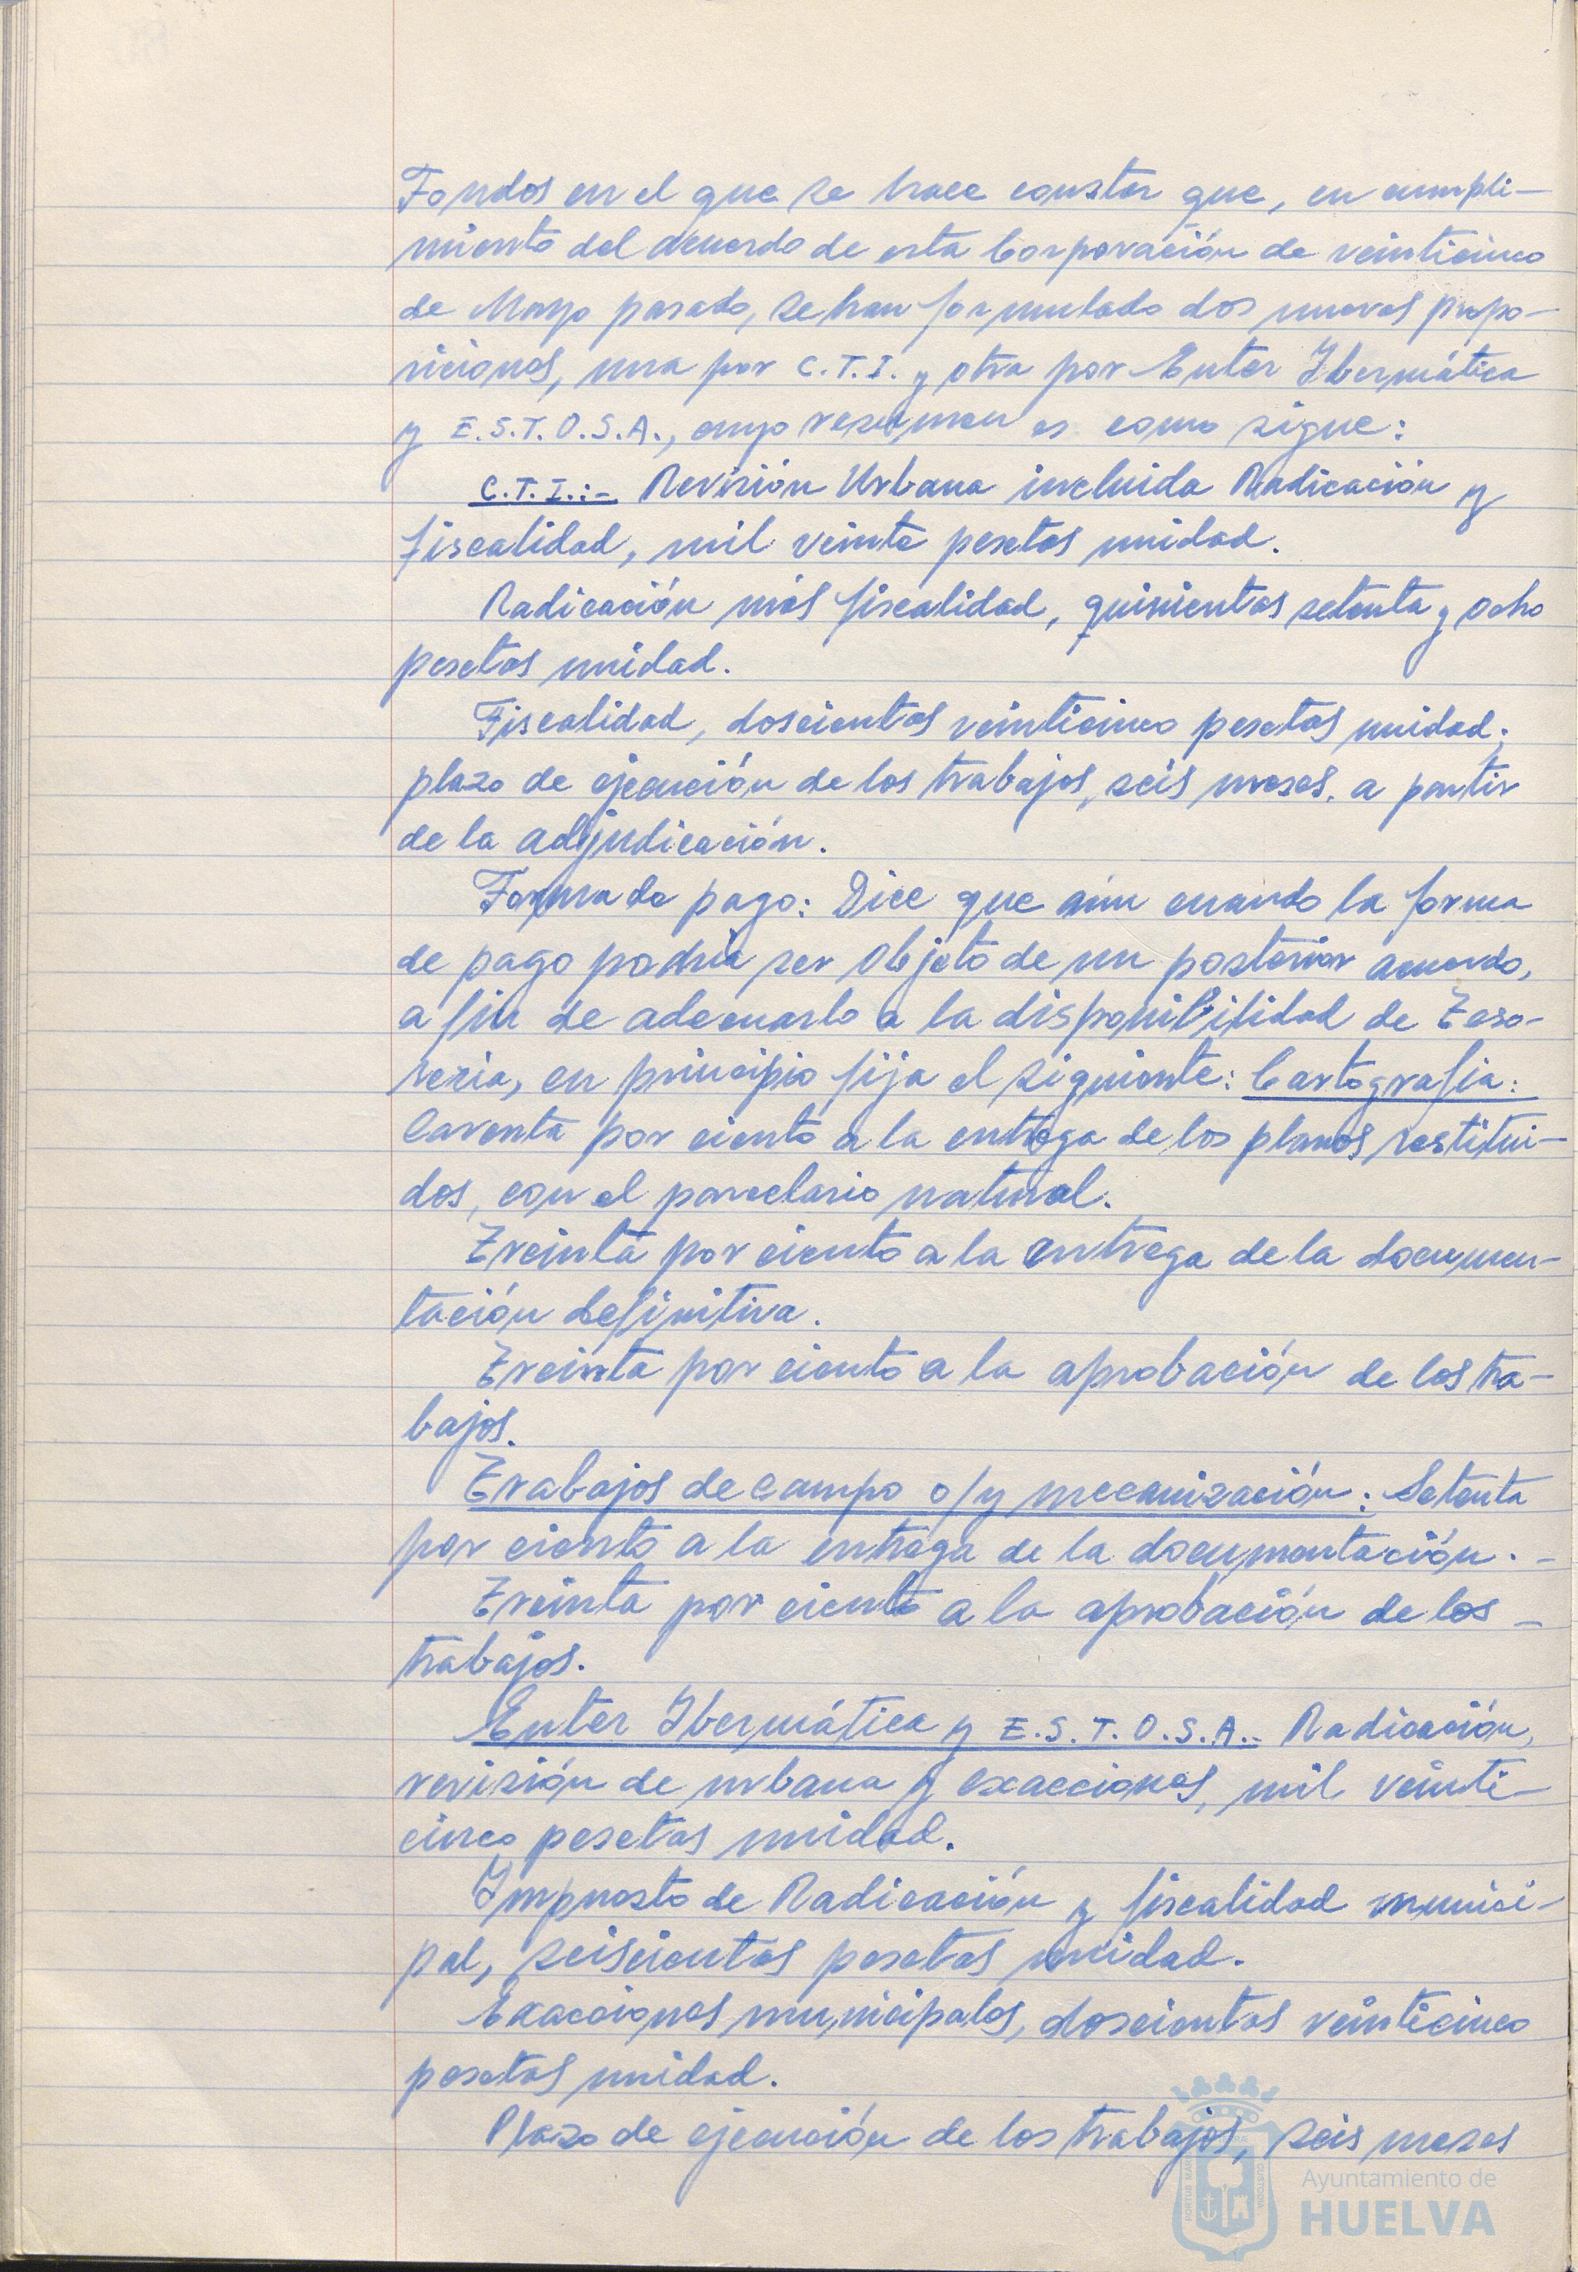 Fondos en el que se hace constar que, en cumpli-
miento del acuerdo de esta Corporación de veinticinco
de Mayo pasado, se han formulado dos nuevas propo-
siciones, una por C.T.I. y otra por Enter Ibermática
y E.S.T.O.S.A., cuyo resumen es como sigue:
C.T.I.:- Revisión Urbana incluida Radicación y
fiscalidad, mil veinte pesetas unidad.
Radicación más fiscalidad, quinientas setenta y ocho
pesetas unidad.
Fiscalidad, doscientas veinticinco pesetas unidad;
plazo de ejecución de los trabajos, seis meses, a partir
de la adjudicación.
Forma de pago: Dice que aún cuando la forma
de pago podría ser objeto de un posterior acuerdo,
a fin de adecuarlo a la disponibilidad de Teso-
rería, en principio fija el siguiente: Cartografía:
Carenta por ciento a la entrega de los planos restitui-
dos, con el parcelario natural.
Treinta por ciento a la entrega de la documen-
tación definitiva.
Treinta por ciento a la aprobación de los tra-
bajos.
Trabajos de campo o/y mecanización: Setenta
por ciento a la entrega de la documentación. -
Treinta por ciento a la aprobación de los -
trabajos.
Enter Ibermática y E.S.T.O.S.A.- Radicación,
revisión de urbana y exacciones, mil veinti-
cinco pesetas unidad.
Impuesto de Radicación y fiscalidad munici-
pal, seiscientas pesetas unidad.
Exacciones municipales, doscientas veinticinco
pesetas unidad.
Plazo de ejecución de los trabajos, seis meses
Ayuntamiento de
HUELVA